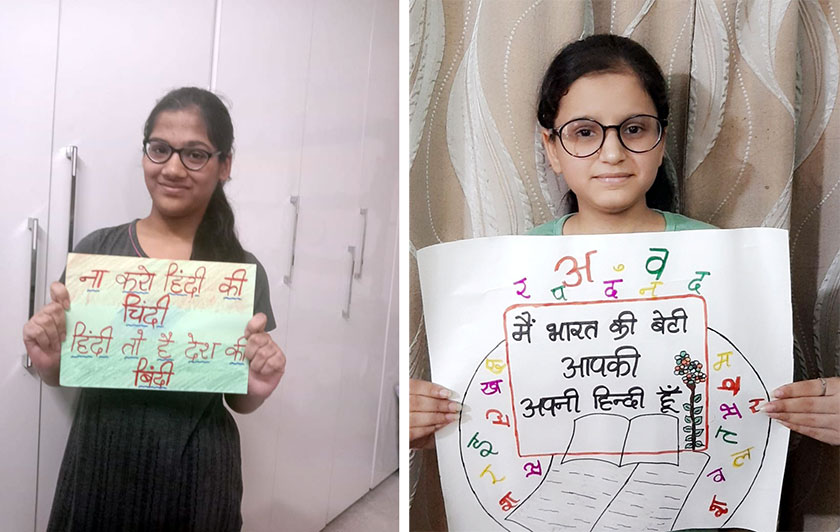 ना करो हिंदी की
चिंदी
हिंदी तो है देश की
बिंदी
अ व
र प द न द
मैं भारत की बेटी
आपकी
अपनी हिन्दी हूँ